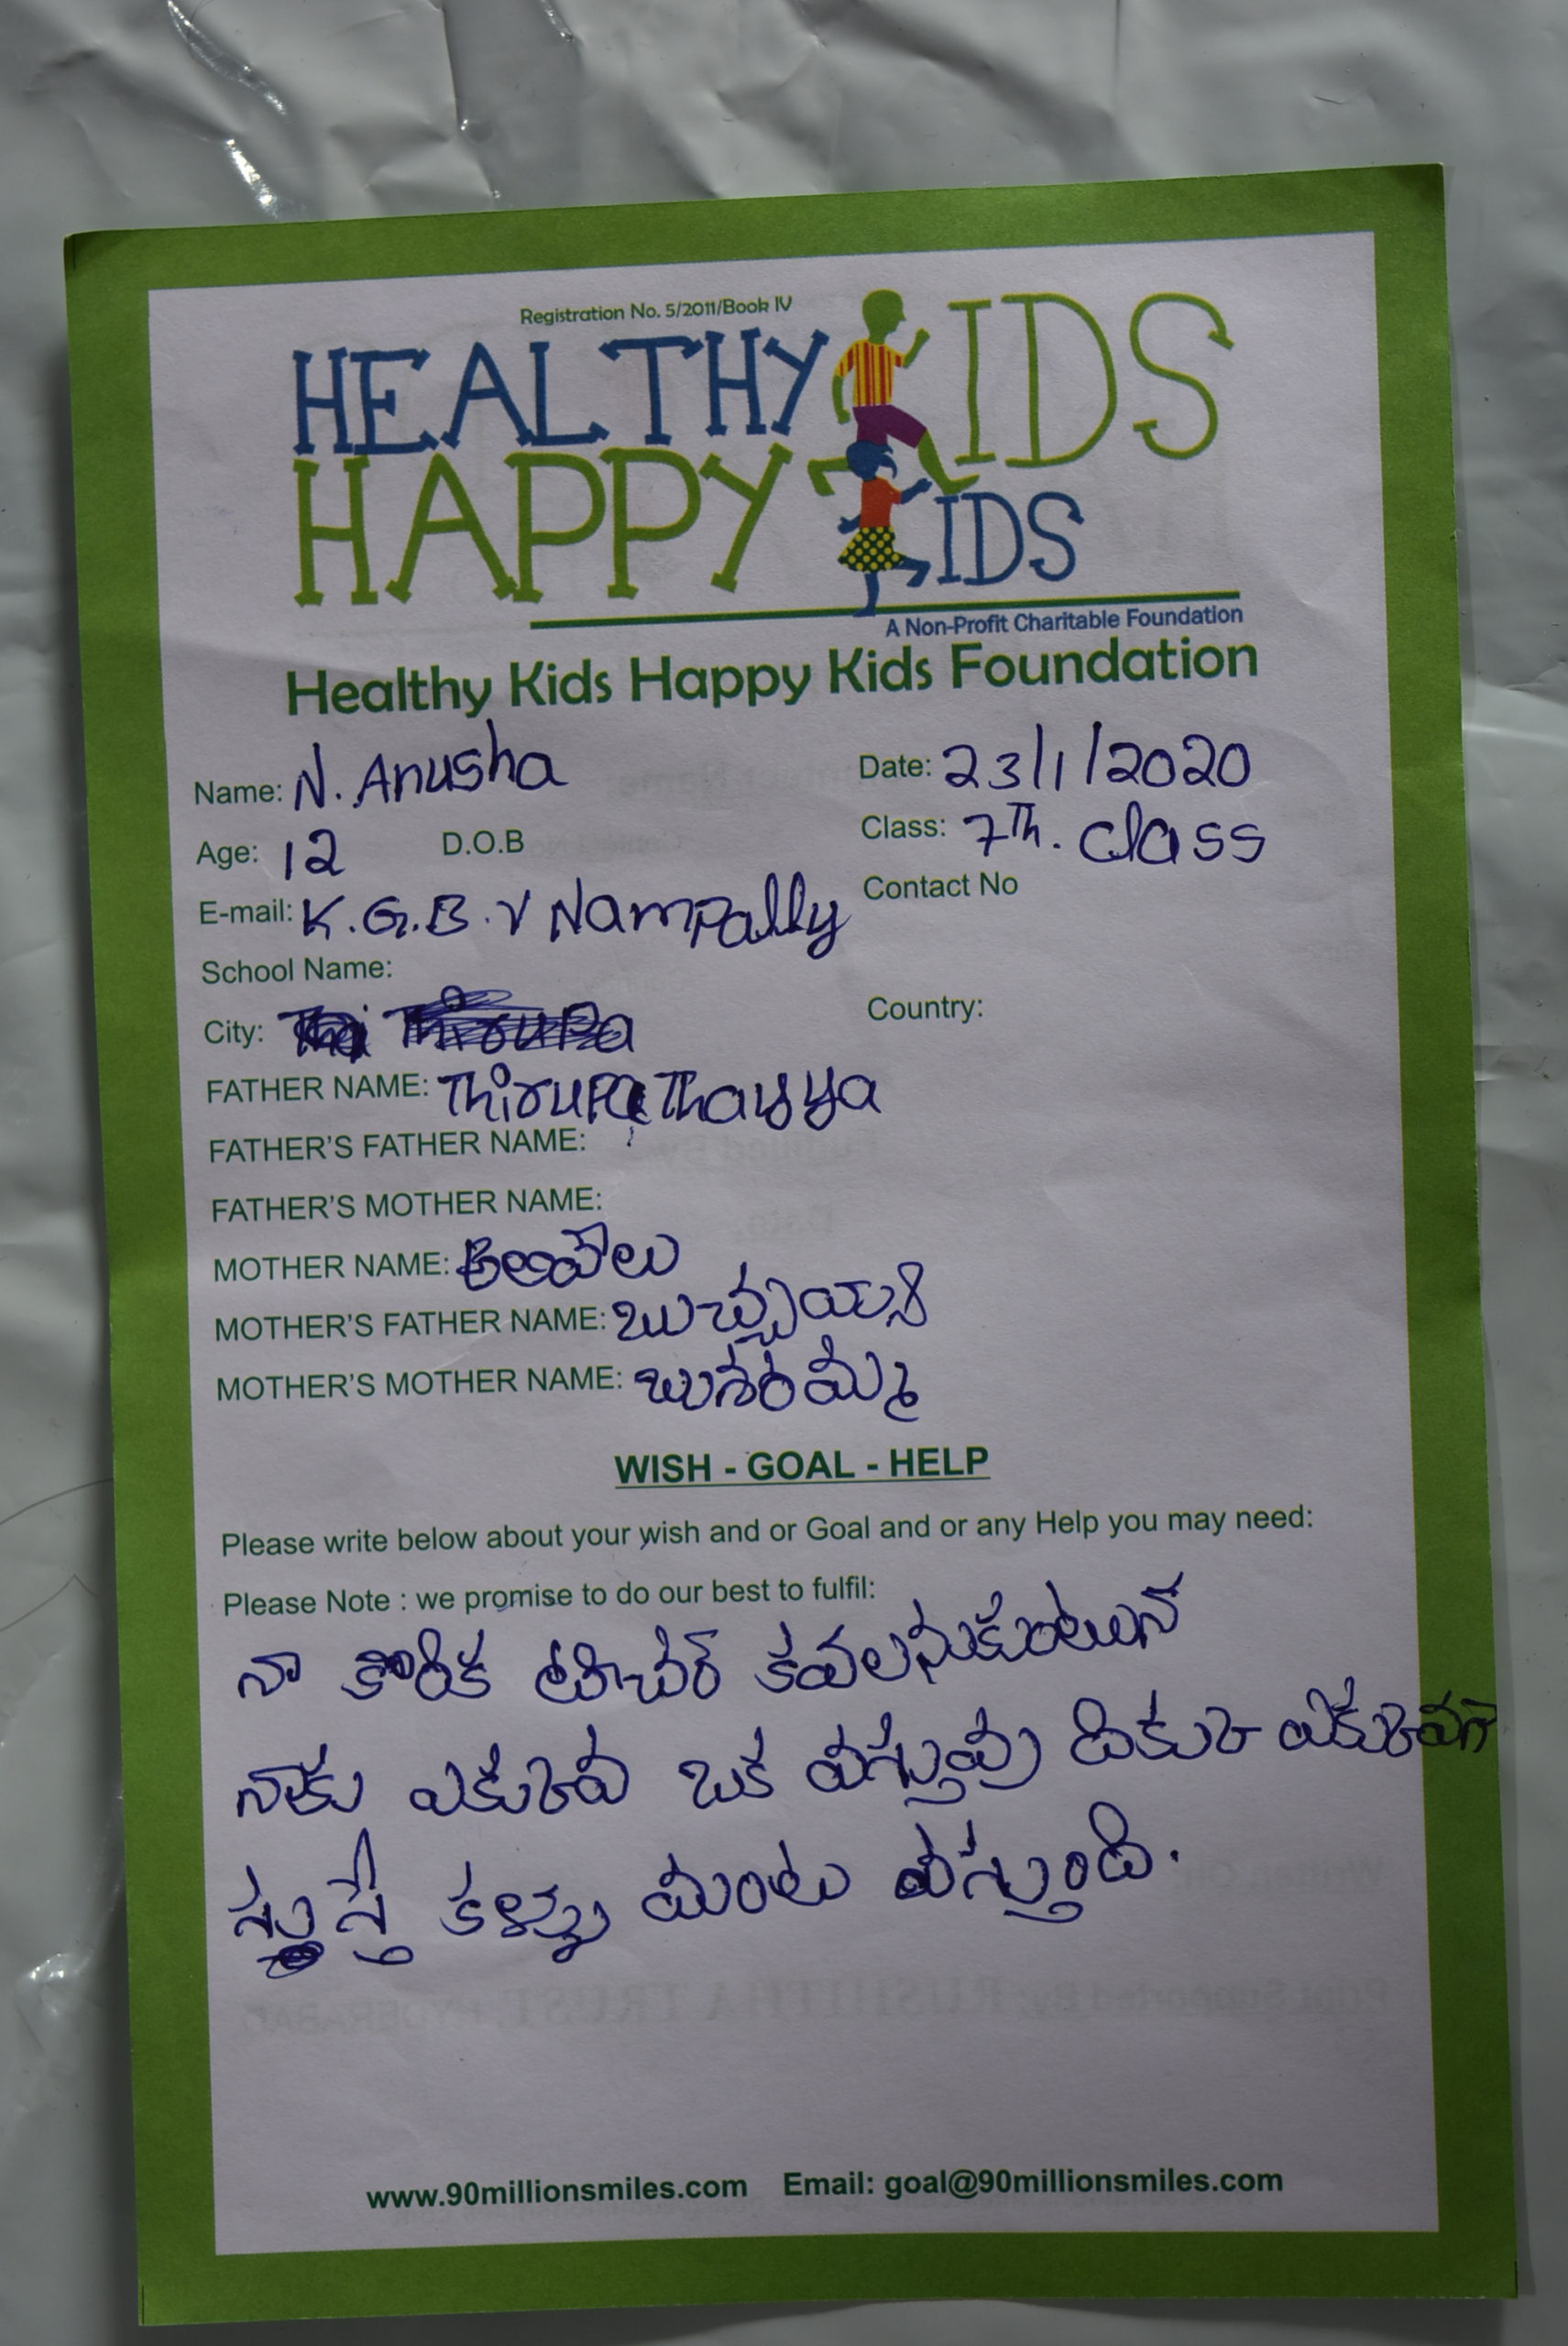 Registration No. 5/2011/Book IV
HEALTHY KIDS
HAPPY KIDS
A Non-Profit Charitable Foundation
Healthy Kids Happy Kids Foundation
Name: N. Anusha Date: 23/1/2020
Age: 12 D.O.B Class: 7Th. class
E-mail: K.G.B.V Nampally Contact No
School Name:
City: Country:
FATHER NAME: Thirupathayya
FATHER'S FATHER NAME:
FATHER'S MOTHER NAME:
MOTHER NAME:
MOTHER'S FATHER NAME:
MOTHER'S MOTHER NAME:
WISH - GOAL - HELP
Please write below about your wish and or Goal and or any Help you may need:
Please Note : we promise to do our best to fulfil:
నా కోరిక టిచేర్ కవలనుకుంటున
నాకు ఒక వస్తువు
కళ్ళు మంట వస్తుంది.
www.90millionsmiles.com Email: goal@90millionsmiles.com